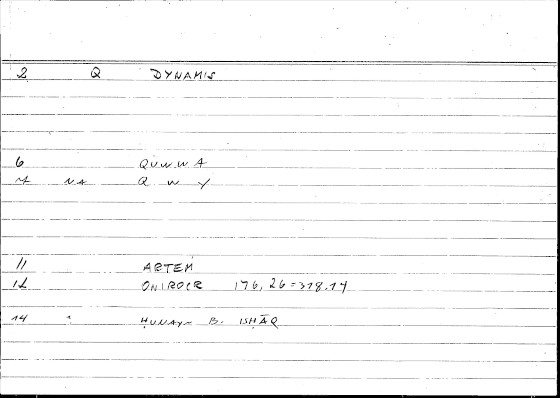 2 Q DYNAMIS
6 QUWWA
7 NA Q W Y
11 ARTEM
12 ONIROCR 176,26=318.14
14 ḤUNAYN B. ISḤĀQ